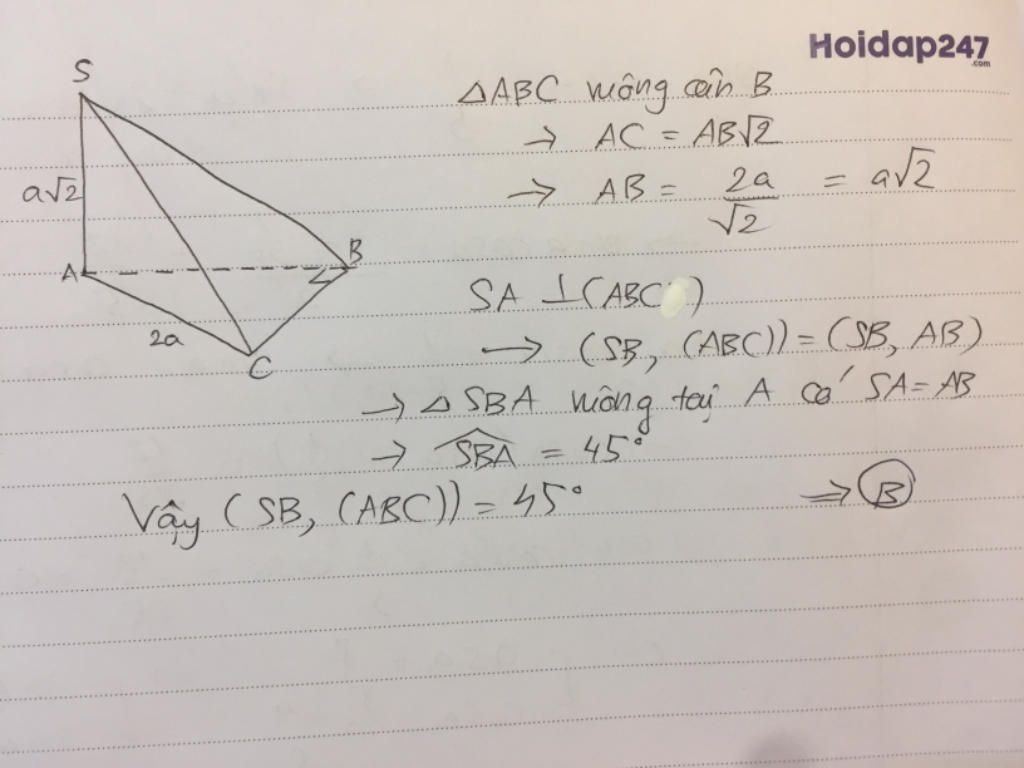 Hoidap247
.com
S
△ABC vuông cân B
→ AC = AB√2
a√2
→ AB = 2a/√2 = a√2
A
B
SA ⊥ (ABC)
2a
C
→ (SB, (ABC)) = (SB, AB)
→ △ SBA vuông tại A có SA = AB
→ SBA = 45°
Vậy (SB, (ABC)) = 45° ⇒ B